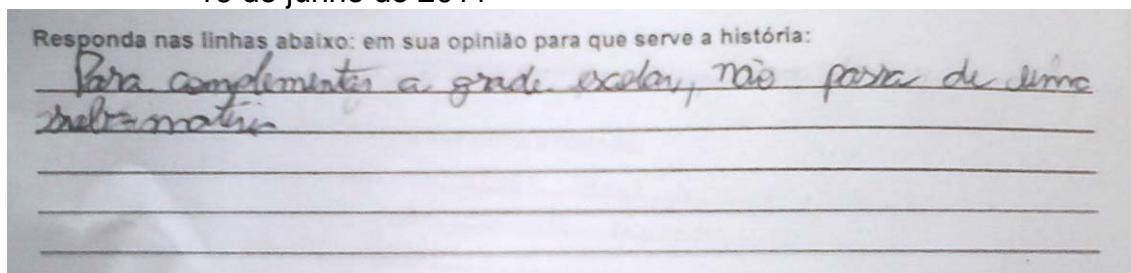 Responda nas linhas abaixo: em sua opinião para que serve a história:
Para complementar a grade escolar, não passa de uma